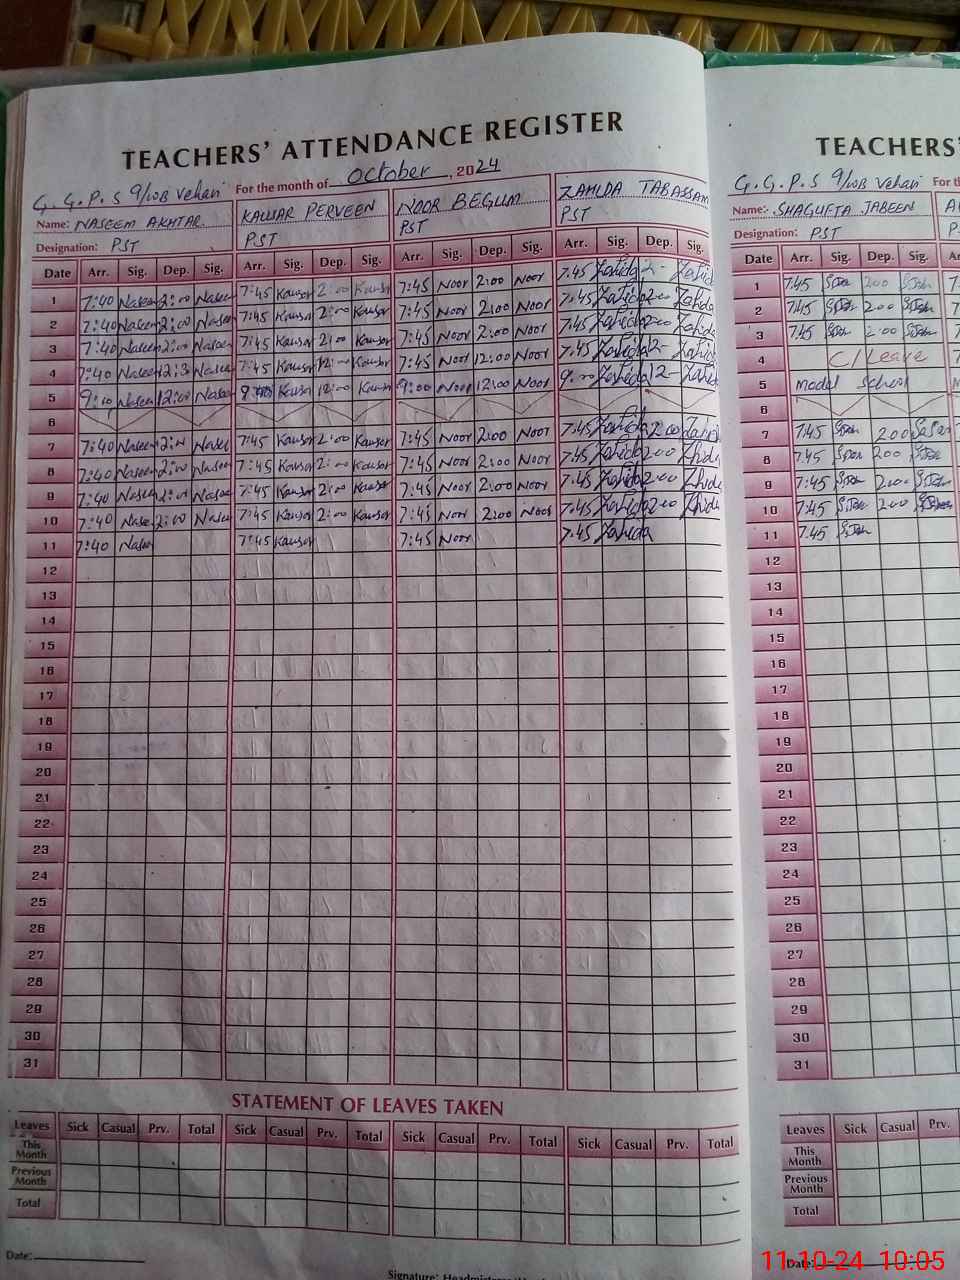 TEACHERS' ATTENDANCE REGISTER
For the month of October, 2024
G.G.P.S 9/WB Vehari
Name: NASEEM AKHTAR KAUSAR PERVEEN NOOR BEGUM ZAHIDA TABASSAM
Designation: PST PST PST PST
Date Arr. Sig. Dep. Sig. Arr. Sig. Dep. Sig. Arr. Sig. Dep. Sig. Arr. Sig. Dep. Sig.
1 7:40 Naseem 2:00 Naseem 7:45 Kausar 2:00 Kausar 7:45 Noor 2:00 Noor 7.45 Zahida 2- Zahida
2 7:40 Naseem 2:00 Naseem 7:45 Kausar 2:00 Kausar 7:45 Noor 2:00 Noor 7.45 Zahida 2.00 Zahida
3 7:40 Naseem 2:00 Naseem 7:45 Kausar 2:00 Kausar 7:45 Noor 2:00 Noor 7.45 Zahida 2.00 Zahida
4 7:40 Naseem Naseem 7:45 Kausar 12:00 Kausar 7:45 Noor 12:00 Noor 7.45 Zahida 2- Zahida
5 9:00 Naseem 12:00 Naseem Kausar 12:00 Kausar 9:00 Noor 12:00 Noor 9.00 Zahida 12- Zahida
6
7 7:40 Naseem 2:00 Naseem 7:45 Kausar 2:00 Kausar 7:45 Noor 2:00 Noor 7.45 Zahida 2.00 Zahida
8 7:40 Naseem 2:00 Naseem 7:45 Kausar 2:00 Kausar 7:45 Noor 2:00 Noor 7.45 Zahida 2.00 Zahida
9 7:40 Naseem 2:00 Naseem 7:45 Kausar 2:00 Kausar 7:45 Noor 2:00 Noor 7.45 Zahida 2.00 Zahida
10 7:40 Naseem 2:00 Naseem 7:45 Kausar 2:00 Kausar 7:45 Noor 2:00 Noor 7.45 Zahida 2.00 Zahida
11 7:40 Naseem 7:45 Kausar 7:45 Noor 7.45 Zahida
12
13
14
15
16
17
18
19
20
21
22
23
24
25
26
27
28
29
30
31
STATEMENT OF LEAVES TAKEN
Leaves Sick Casual Prv. Total Sick Casual Prv. Total Sick Casual Prv. Total Sick Casual Prv. Total
This Month
Previous Month
Total
Date:
Signature: Headmistress
TEACHERS'
G.G.P.S 9/WB Vehari
Name: SHAGUFTA JABEEN
Designation: PST
Date Arr. Sig. Dep. Sig.
1 7.45 200
2 7.45 200
3 7.45 200
4 C/Leave
5 model school
6
7 7.45 200
8 7.45 200
9 7.45 200
10 7.45 200
11 7.45
12
13
14
15
16
17
18
19
20
21
22
23
24
25
26
27
28
29
30
31
Leaves Sick Casual Prv.
This Month
Previous Month
Total
Date:
11-10-24 10:05